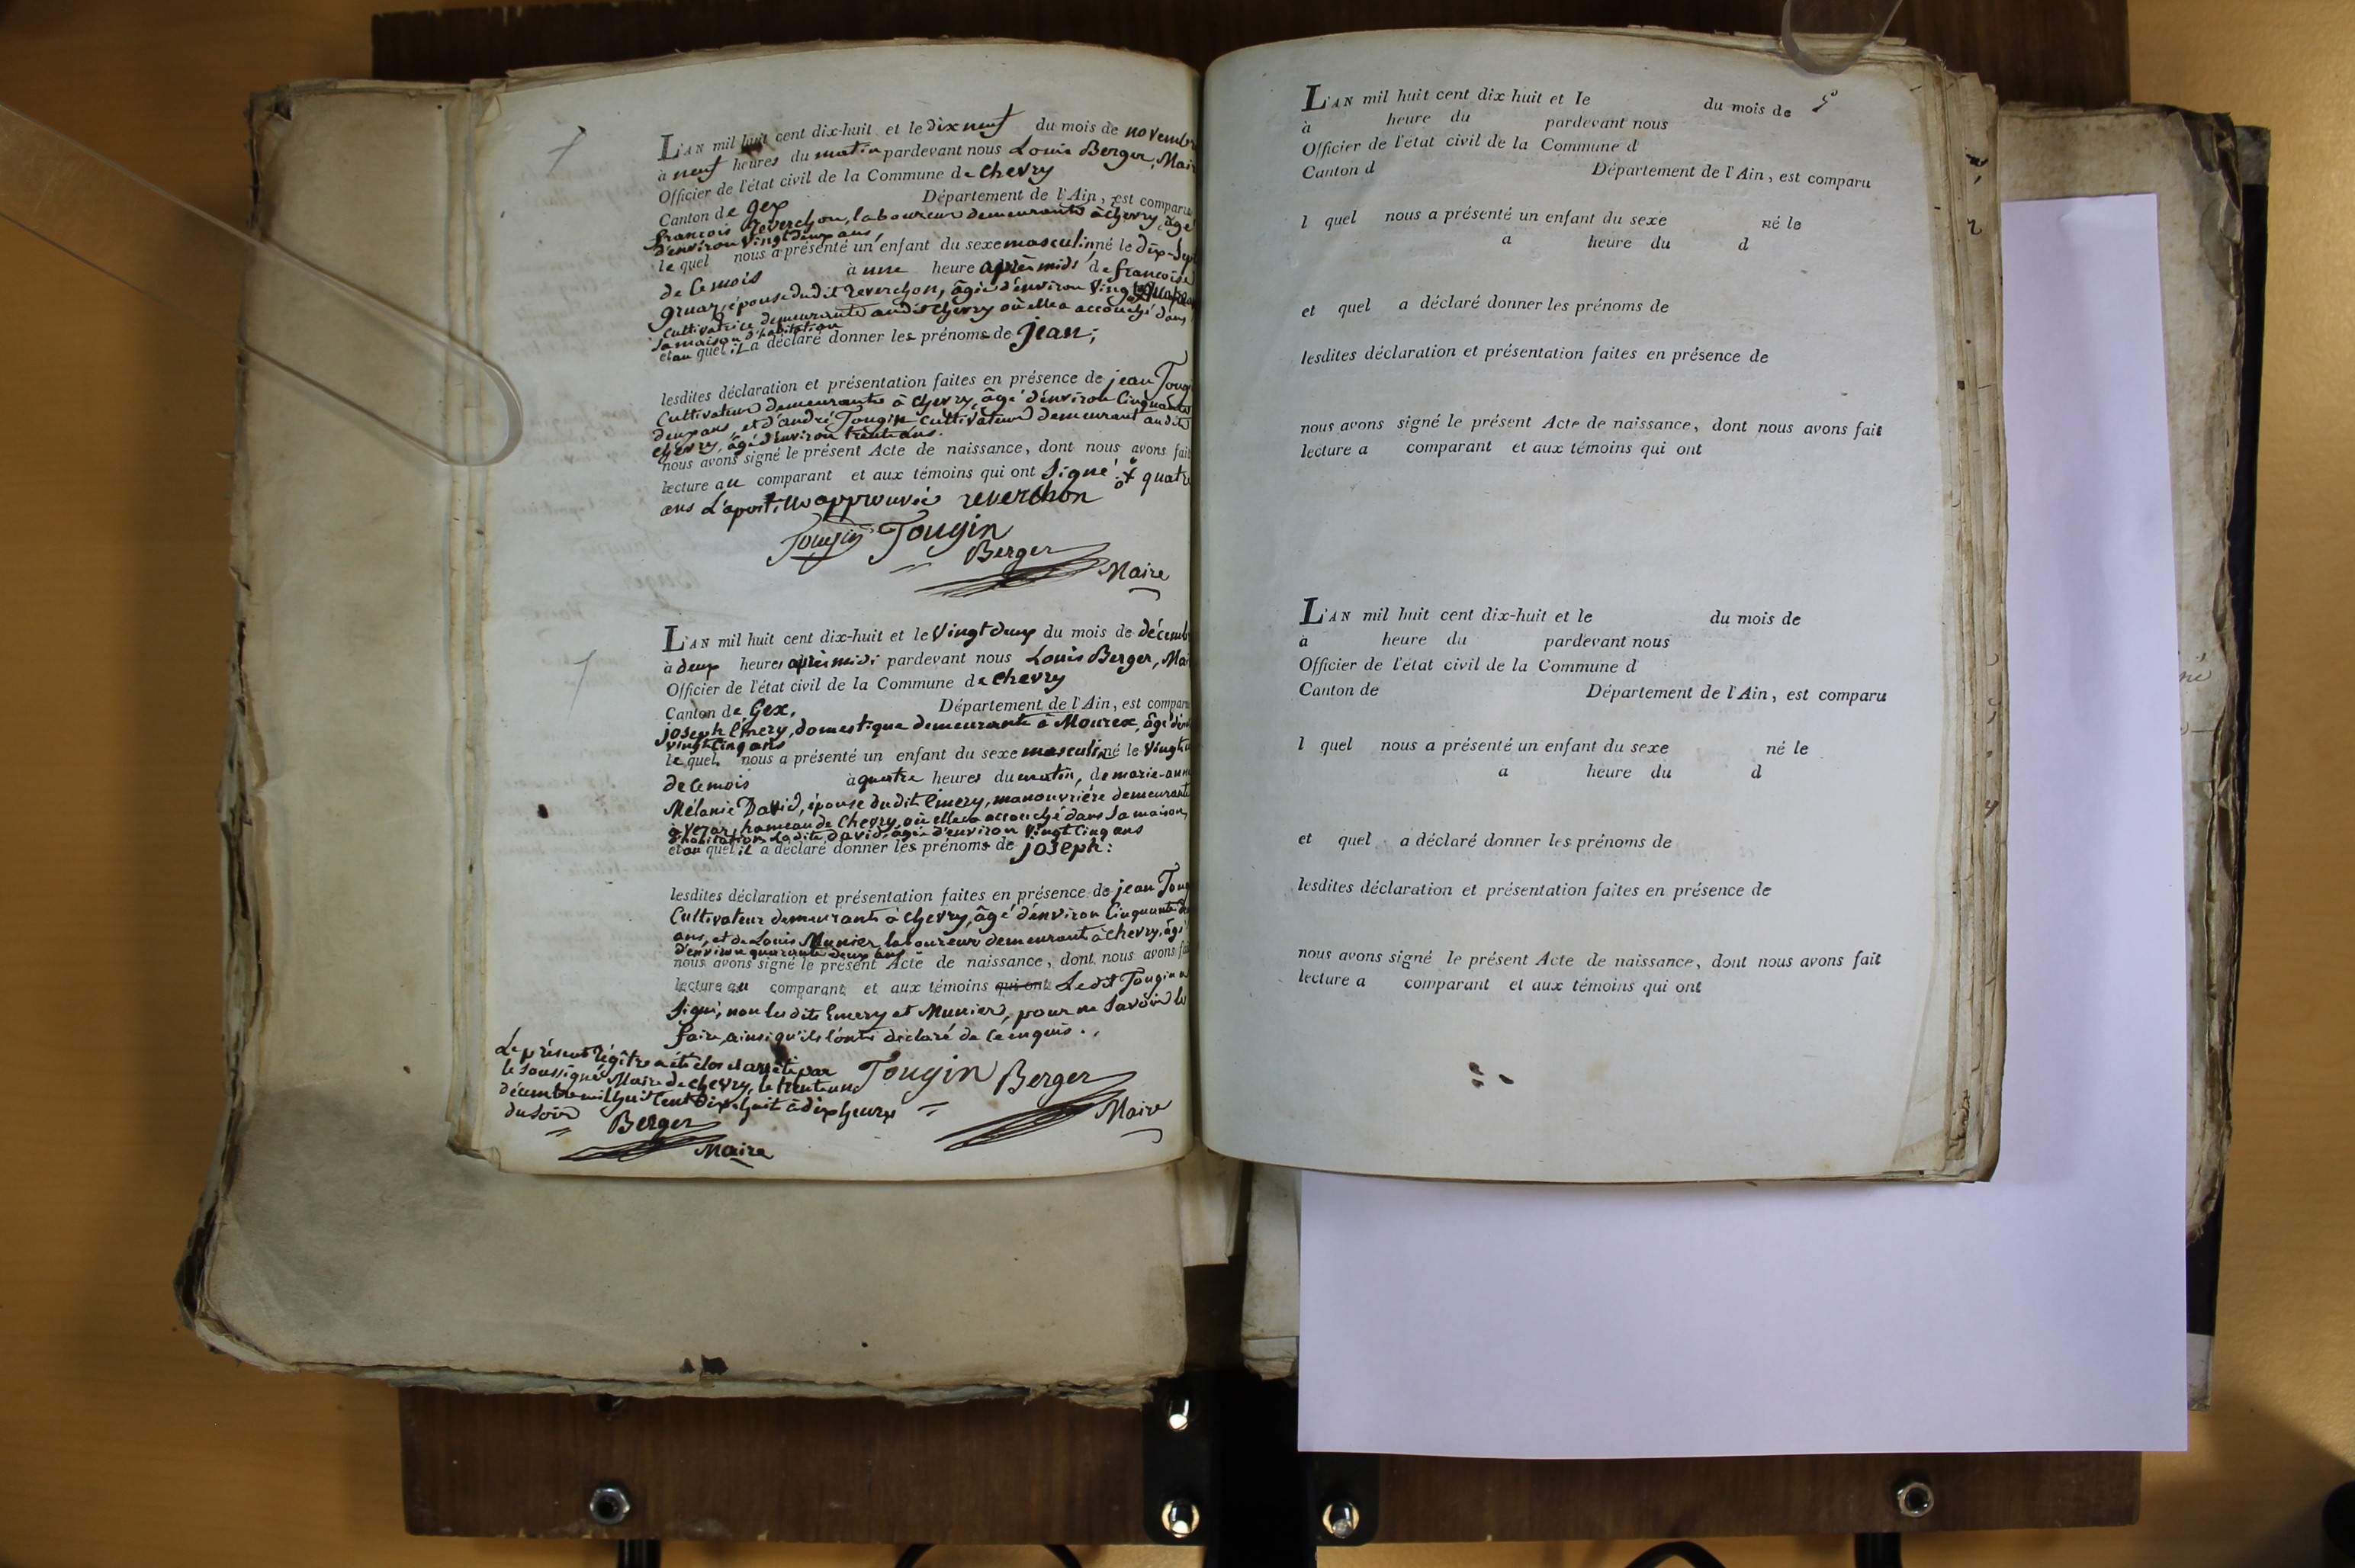 L'AN mil huit cent dix-huit et le dix neuf du mois de novembr
à neuf heures du matin pardevant nous Louis Berger, Mai
Officier de l'état civil de la Commune de chevry
Canton de gex Département de l'Ain, est comparu
francois Reverchon, laboureur demeurant à chevry, âgé
d'environ vingt deux ans,
le quel nous a présenté un enfant du sexe masculin né le dix-sep
de ce mois à une heure après midi de francoise
gruaz, épouse dudit reverchon, âgée d'environ vingt
cultivatrice demeurante audit chevry où elle a accouché dans
sa maison d'habitation
et au quel il a déclaré donner les prénoms de jean;
lesdites déclaration et présentation faites en présence de jean Toug
Cultivateur demeurant à chevry, âgé d'environ Cinquante
deux ans, et d'andré Tougin cultivateur demeurant audit
chevry, âgé d'environ trente ans.
nous avons signé le présent Acte de naissance, dont nous avons fait
lecture au comparant et aux témoins qui ont signé quatre
ans L'apostille approuvée reverchon
Tougin Tougin
Berger
Maire
L'AN mil huit cent dix-huit et le vingt deux du mois de décemb
à deux heures après midi pardevant nous Louis Berger, Mai
Officier de l'état civil de la Commune de chevry
Canton de Gex, Département de l'Ain, est comparu
joseph Emery, domestique demeurant à Mourex, âgé d'en
vingt cinq ans
le quel nous a présenté un enfant du sexe masculin né le vingt
de ce mois à quatre heures du matin, de marie-anne
Mélanie David, épouse dudit Emery, manouvrière demeurante
à veraz, hameau de Chevry, où elle a accouché dans sa maison
d'habitation, ladite David, âgée d'environ vingt cinq ans
et au quel il a déclaré donner les prénoms de joseph:
lesdites déclaration et présentation faites en présence de jean Toug
Cultivateur demeurant à chevry, âgé d'environ Cinquante
ans, et de Louis Munier, laboureur demeurant à chevry, âgé
d'environ quarante deux ans
nous avons signé le présent Acte de naissance, dont nous avons fai
lecture au comparant et aux témoins qui ont Ledit Tougin a
signé, non lesdits Emery et Munier, pour ne savoir le
faire, ainsi qu'ils l'ont déclaré de ce enquis.
Tougin Berger
Maire
Le présent régître a été clos et arrêté par
le soussigné Maire de chevry, le trente un
décembre mil huit cent dix-huit à dix heures
du soir
Berger
Maire
L'AN mil huit cent dix-huit et le du mois de
à heure du pardevant nous
Officier de l'état civil de la Commune d
Canton d Département de l'Ain, est comparu
l quel nous a présenté un enfant du sexe né le
a heure du d
et quel a déclaré donner les prénoms de
lesdites déclaration et présentation faites en présence de
nous avons signé le présent Acte de naissance, dont nous avons fait
lecture a comparant et aux témoins qui ont
L'AN mil huit cent dix-huit et le du mois de
à heure du pardevant nous
Officier de l'état civil de la Commune d
Canton de Département de l'Ain, est comparu
l quel nous a présenté un enfant du sexe né le
a heure du d
et quel a déclaré donner les prénoms de
lesdites déclaration et présentation faites en présence de
nous avons signé le présent Acte de naissance, dont nous avons fait
lecture a comparant et aux témoins qui ont